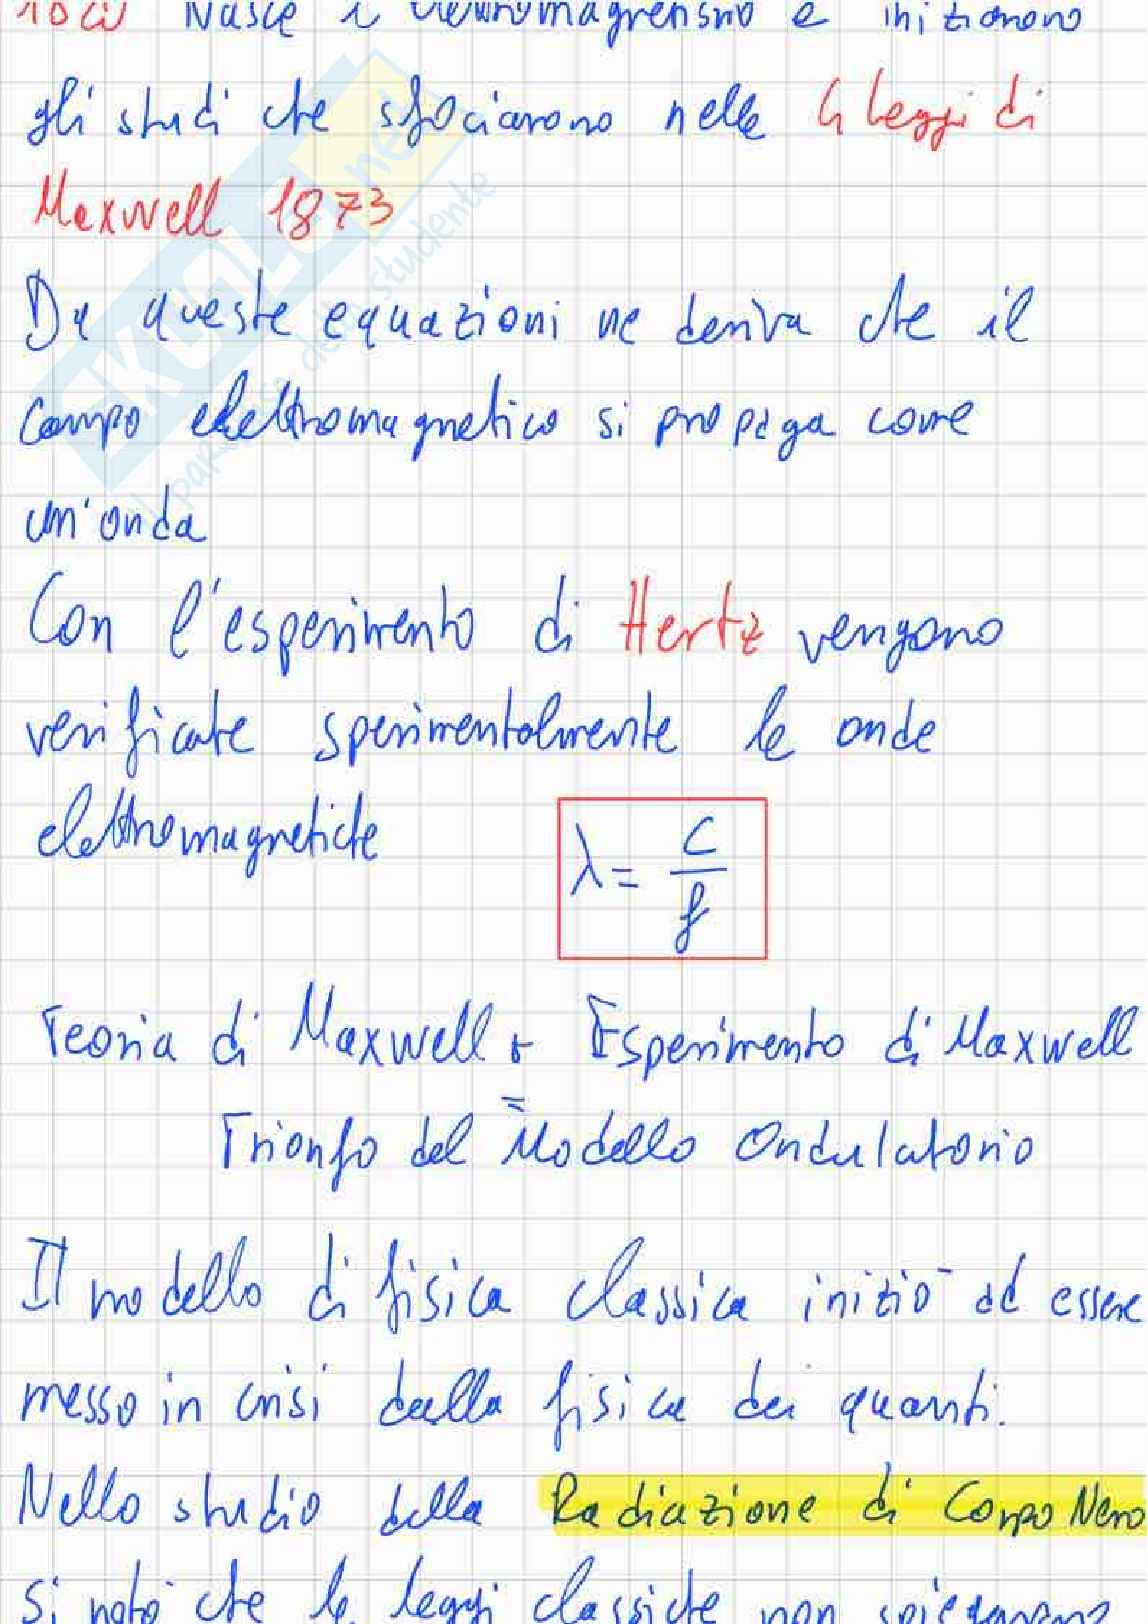 Nasce l'elettromagnetismo e iniziarono
gli studi che sfociarono nelle 4 leggi di
Maxwell 1873
Da queste equazioni ne deriva che il
campo elettromagnetico si propaga come
un'onda
Con l'esperimento di Hertz vengono
verificate sperimentalmente le onde
elettromagnetiche
λ = c/f
Teoria di Maxwell + Esperimento di Maxwell
=
Trionfo del Modello Ondulatorio
Il modello di fisica classica iniziò ad essere
messo in crisi dalla fisica dei quanti.
Nello studio della Radiazione di Corpo Nero
si notò che le leggi classiche non spiegavano
SKUOLA.net
il paradiso dello studente